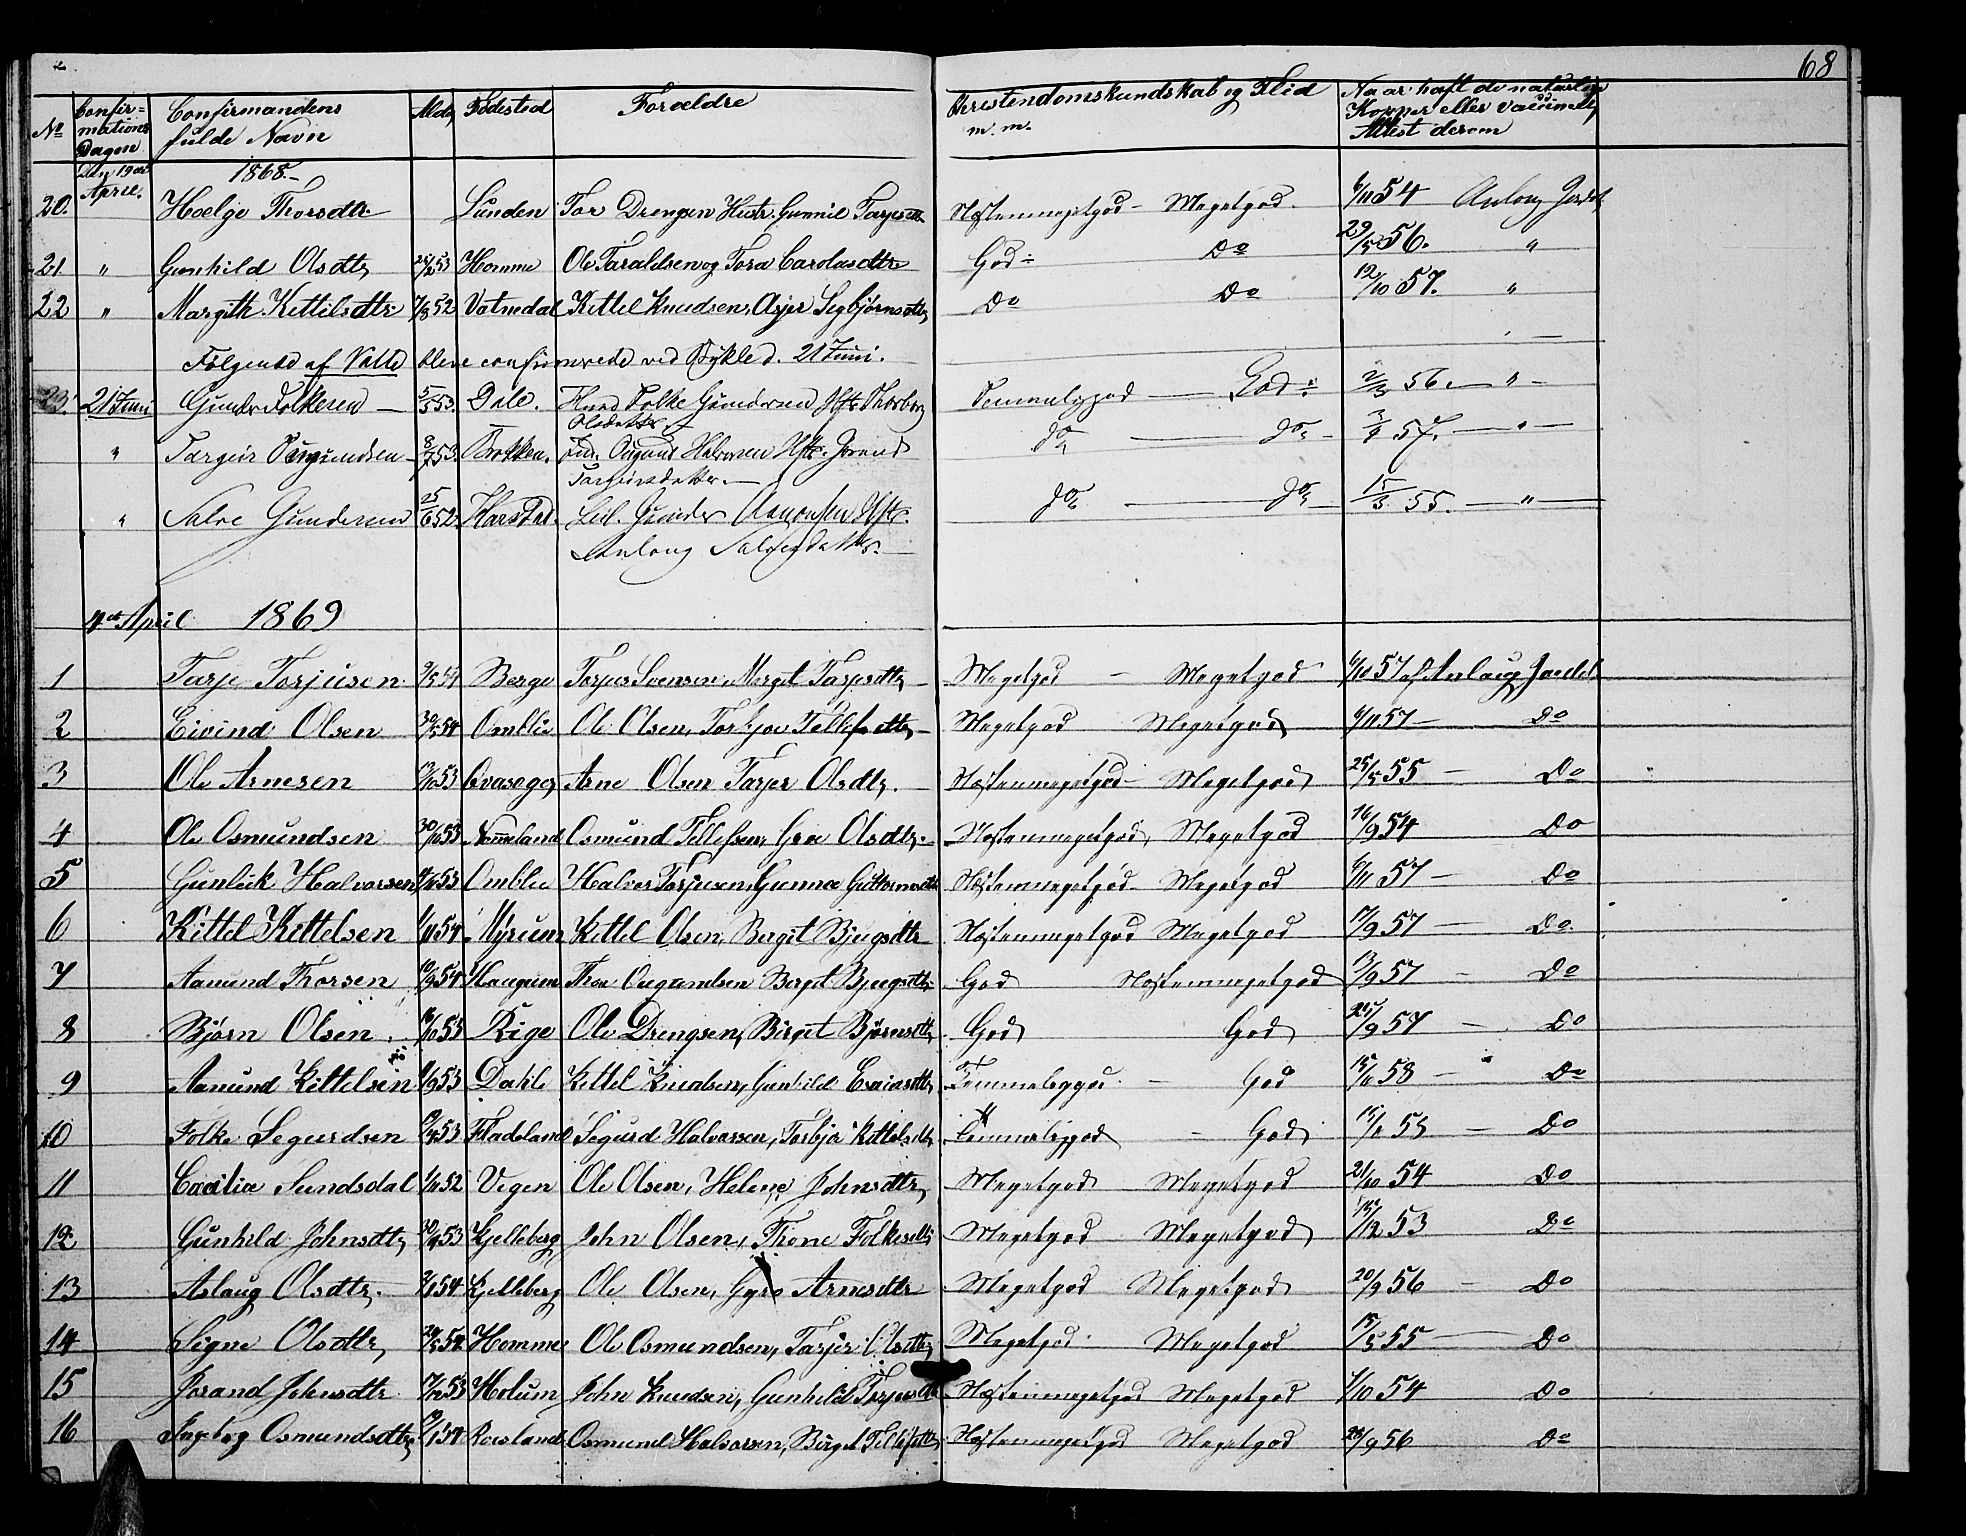 68
No Confirmations Dagen Confirmandens fulde Navn Alder Fødested Forældre Christendomskundskab og Flid m. m. Naar haft de naturlige Kopper eller vaccineret, Attest derom
Den 19de April. 1868.
20. Helge Thorsdtr Lunden Tor Drengsen Hustr. Gunnil Tarjesdtr Næstenmegetgod - Megetgod. 6/11 54 Anlong Jordet
21 " Gunhild Olsdtr 53 Homme Ole Taraldsen og Tora Carolasdtr God Do 29/5 56. "
22 " Margith Kittilsdtr 7/8 52 Vatnedal Kittel Knudsen, Asjer Segbjørnsdtr Do Do 12/10 57. "
Følgende af Valle bleve confirmerede ved Bykle d. 21 Juni.
23. 21 Juni Gunder Folkesen 5/5 53. Dale. Huusd Folke Gundersen Hstr Thorborg Olsdatter Temmeliggod God 2/3 56. "
" Targeir Augundsen 8/7 53. Brokken. Augund Halvorsen Hstr. Jorand Targeirsdatter. do do 57. "
" Salve Gundersen 25/6 52. Harstad. Leil. Gunder Aamonsen Hstr. Anlong Salvesdatter. do do 15/3. 55. "
4de April 1869
1 Tarje Torjusen 9/5 54 Berge Torjus Svensen Margit Tarjesdtr Megetgod - Megetgod 6/10 57 af Anlaug Jordet
2 Eivind Olsen 30/5 54 Omblie Ole Olsen, Torbjør Tellefsdtr Megetgod Megetgod 6/11 57 Do
3 Ole Arnesen 53 Qvasager Arne Olsen Tarjer Olsdtr. Næstenmegetgod Megetgod 25/5 55 Do
4 Ole Osmundsen 30/10 53 Nommeland Osmund Tellefsen, Gro Olsdtr. Næstenmegetgod, Megetgod 16/9 54 Do
5 Gunleik Halvorsen 53 Omblie Halvor Torjusen, Gunnea Guttormsdtr Næstenmegetgod Megetgod 6/11 57 Do
6 Kittel Kittelsen 54 Myrum Kittel Olsen, Bergit Bjugsdtr Næstenmegetgod Megetgod 17/9 57 Do.
7 Aamund Thorsen 10/9 54 Haugum Thor Augundsen Bergit Bjugsdtr God Næstenmegetgod 13/9 57 Do
8 Bjørn Olsen. 53 Rige Ole Drengsen, Birgit Bjørnsdtr God God 25/9 57 Do
9 Aamund Kittelsen 53 Dahle Kittel Knudsen, Gunhild Esaiasdtr Temmeliggod - God 58 Do
10 Folke Segurdsen 53 Fladeland Segurd Halvorsen, Torbjør Kittelsdtr Temmeliggod - God 55 Do
11 Cæcilie Sundsdal 1/11 52 Vegen Ole Olsen, Helene Johnsdtr Megetgod Megetgod 21/10 54 Do
12 Gunhild Johnsdtr 53 Kjelleberg John Olsen, Thone Folkesdtr Megetgod Megetgod 15/12 53 Do
13 Aslaug Olsdtr. 54 Kjelleberg Ole Olsen, Gyro Arnesdtr Megetgod Megetgod 20/9 56 Do
14 Signe Olsdtr 54 Homme Ole Osmundsen, Tarjer Olsdtr Megetgod. Megetgod 15/5 55 Do
15 Jorand Johnsdtr 53 Holum John Knudsen, Gunhild Tarjesdtr Næstenmegetgod Megetgod 7/10 54 Do
16 Ingebog Osmundsdtr 54 Rorsland Osmund Halvorsen, Birgit Tellefsdtr Næstenmegetgod Megetgod 28/9 56 Do